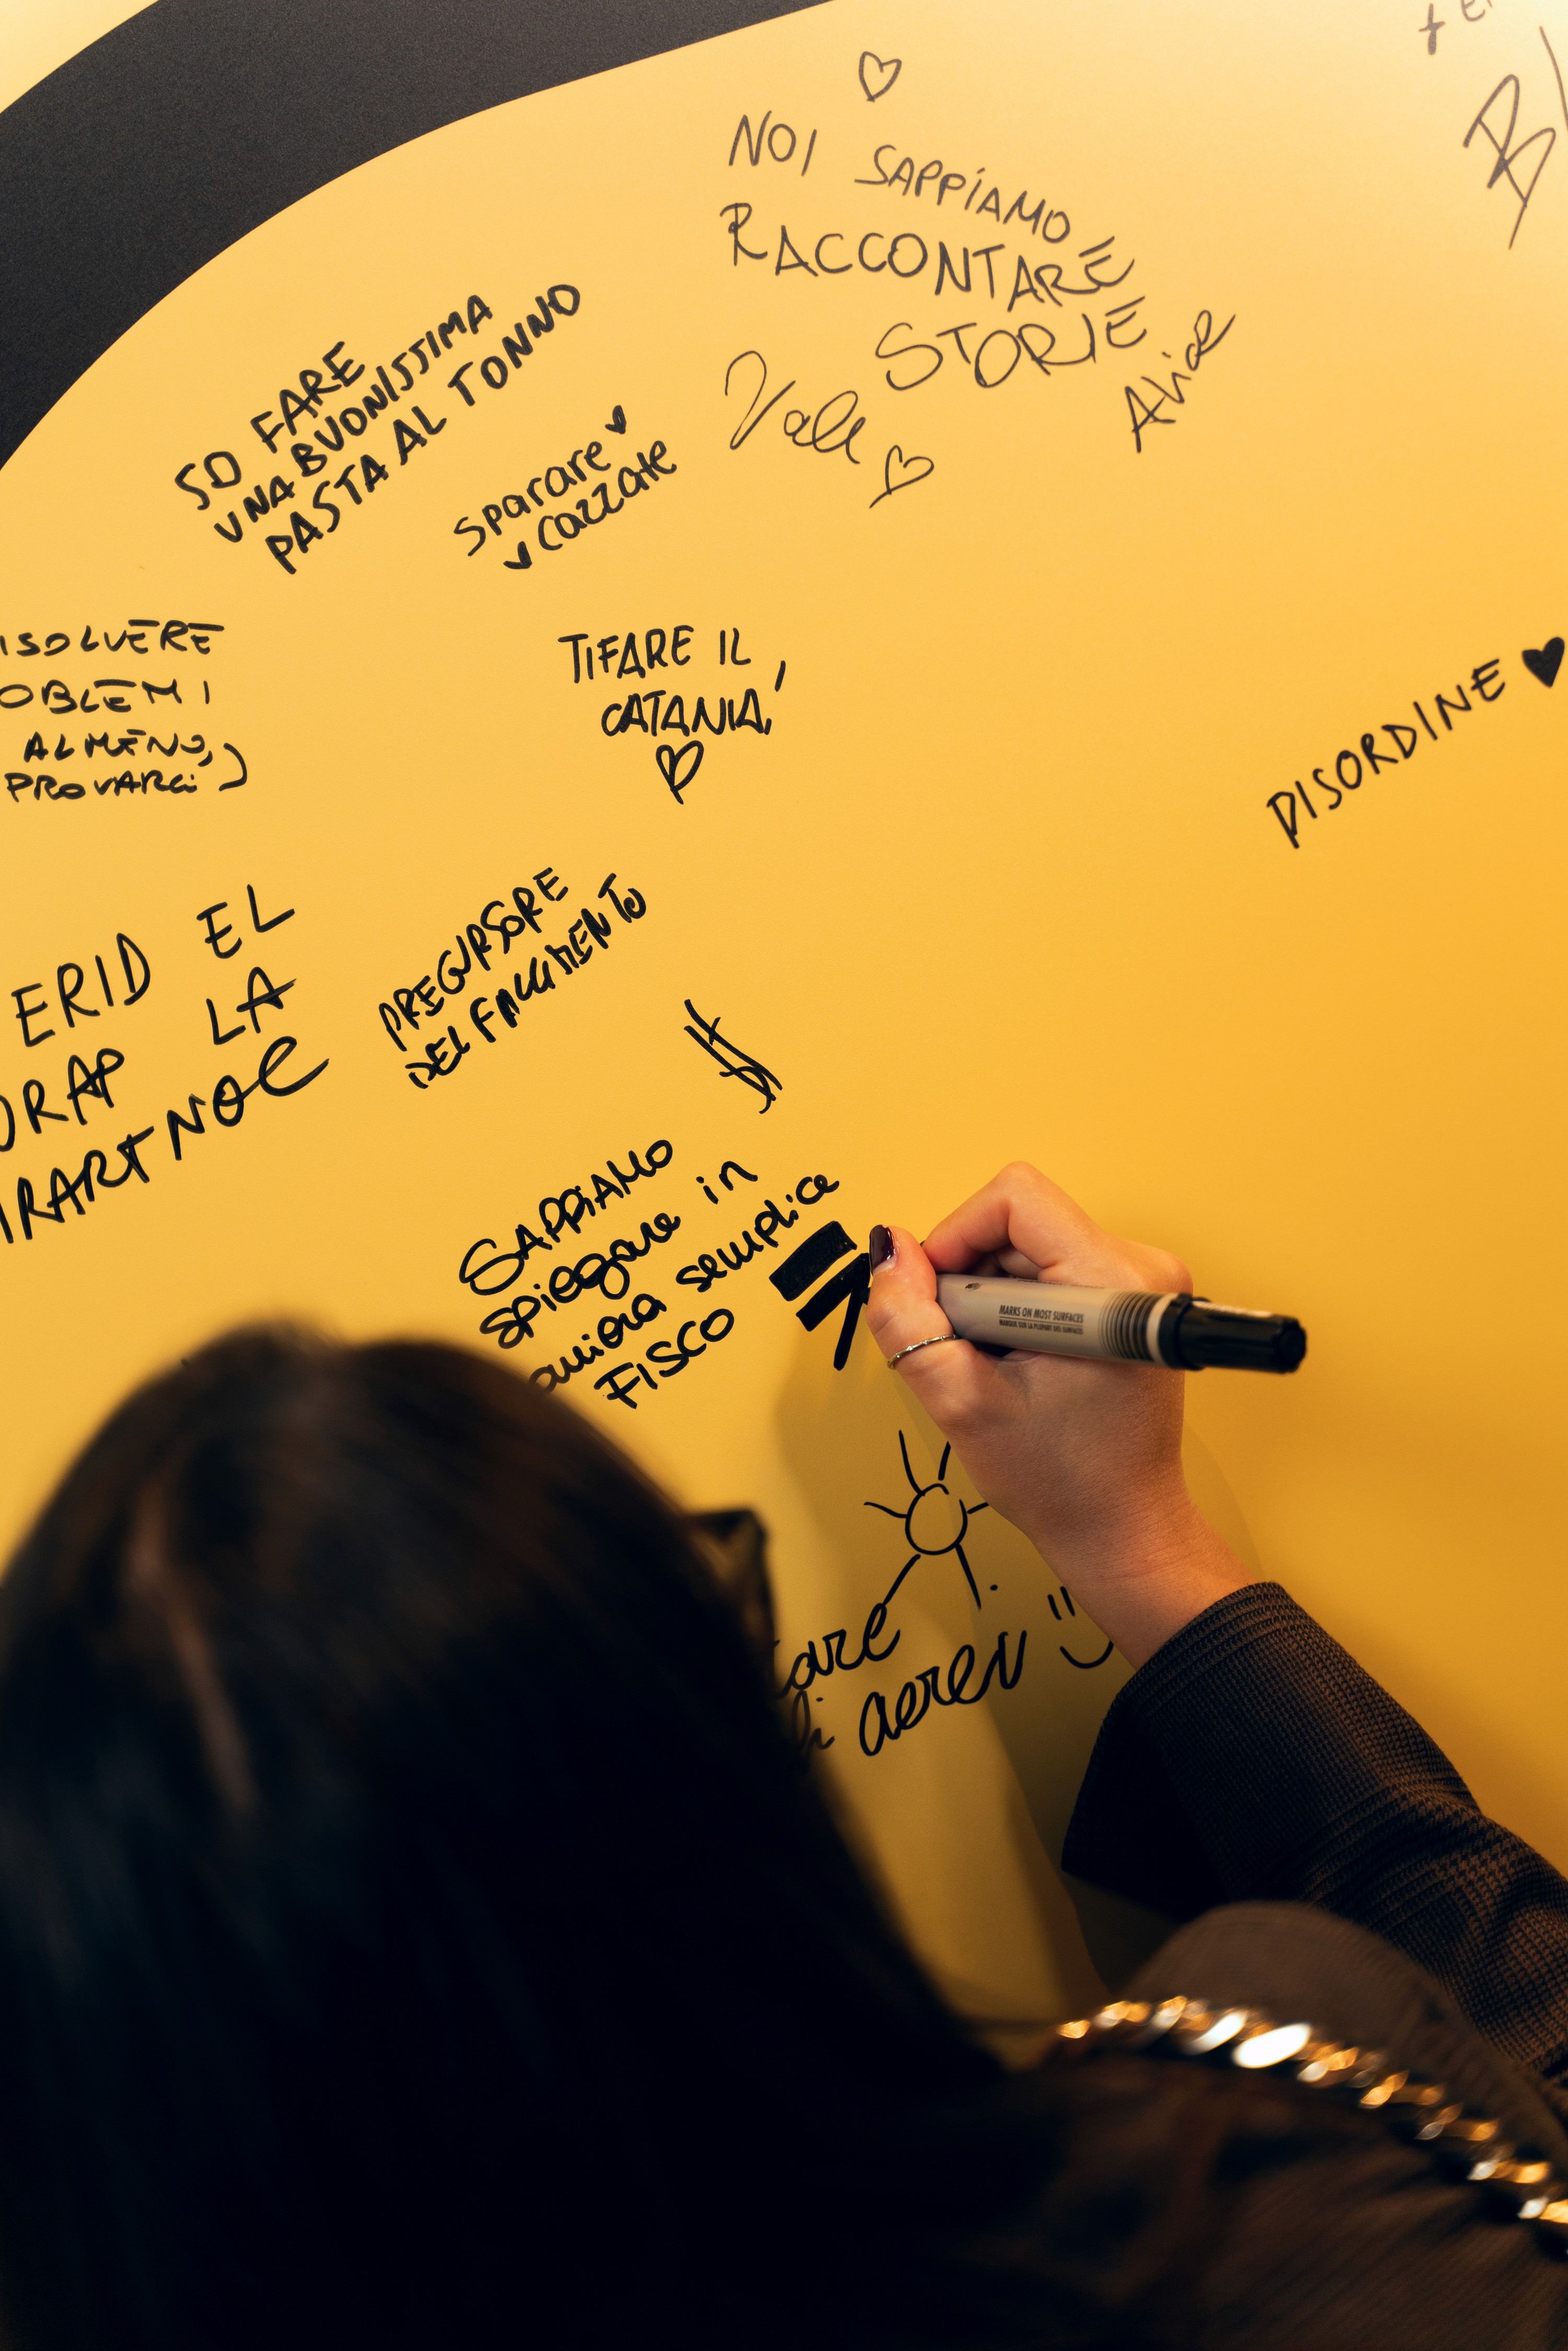 NOI SAPPIAMO
RACCONTARE
STORIE
Vale
Alice
SO FARE
UNA BUONISSIMA
PASTA AL TONNO
sparare
cazzate
ISOLVERE
OBLEMI
ALMENO,
PROVARCI)
TIFARE IL
CATANIA!
DISORDINE
ERID EL
ORAP LA
IRARTNOC
PRECURSORE
DEL FALLIMENTO
SAPPIAMO
spiegare in
aniera semplice
FISCO
tare
li aerei
MARKS ON MOST SURFACES
MARQUE SUR LA PLUPART DES SURFACES